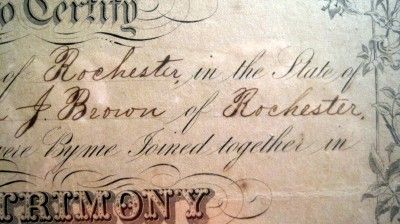 to Certify
of Rochester, in the State of
J. Brown of Rochester,
were By me Joined together in
TRIMONY